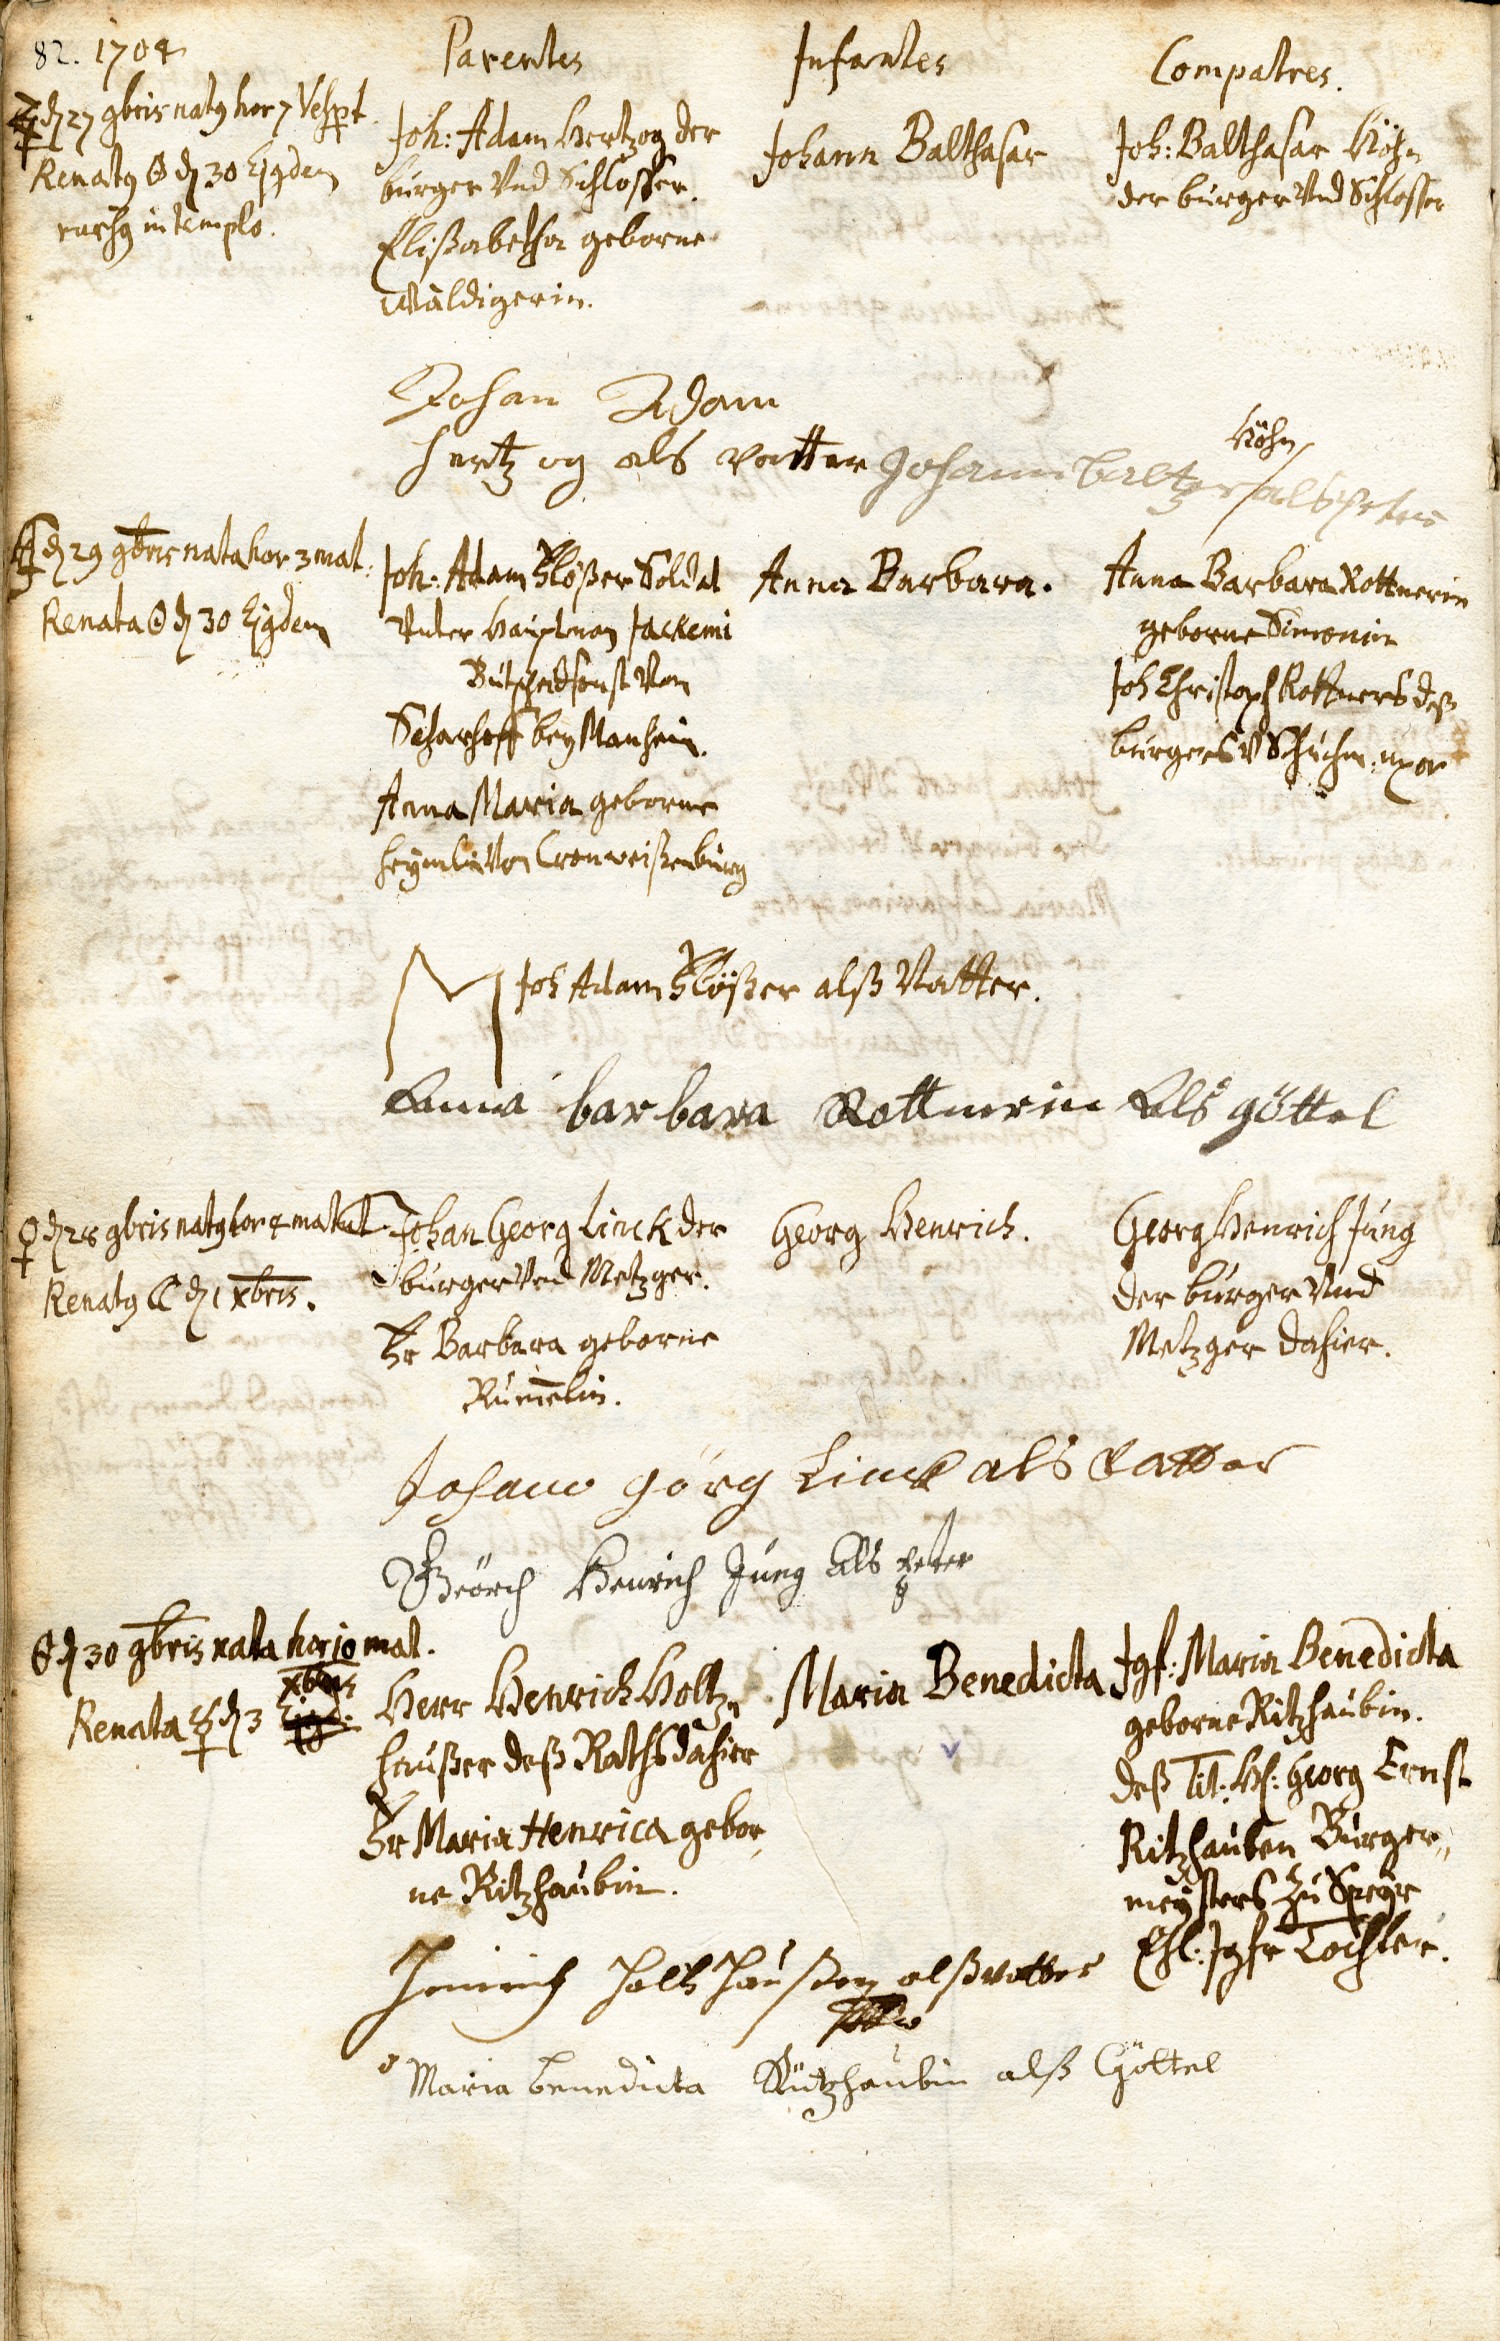 82. 1704
Parentes
Infantes
Compatres.
d 27 9bris natg hor 7 Vespt
Renatg d 30 Ejgdem
rursg in templo.
Joh: Adam Hertzog der
burger Vnd Schlosser.
Elisabetha geborne
Wäldigerin.
Johann Balthasar
Joh: Balthasar Köhn
der burger Vnd Schlosser
Johan Adam
Hertzog als vatter
Köhn
Johann baltzer als Peter
d 29 9bris nata hor 3 mat:
Renata d 30 Ejgdem
Joh: Adam Klößer Soldat
Vnter Hauptman Jackemi
sonst Von
Scharhoff bey Manheim.
Anna Maria geborne
Heymlin Von Cronweißenburg
Anna Barbara.
Anna Barbara Rottnerin
geborne Simonin
Joh Christoph Rottners deß
burgers V Schuhm: uxor
Joh Adam Klößer alß Vatter.
Anna barbara Rottnerin Als göttel
d 28 9bris natg hor 4 matut.
Renatg d 1 Xbris.
Johan Georg Linck der
burger Vnd Metzger.
Fr Barbara geborne
Rum̄elin.
Georg Henrich.
Georg Henrich Jung
der burger Vnd
Metzger dahier.
Johann Görg Linck als vatter
Geörch Henrich Jung Als peter
d 30 9bris nata hor 10 mat.
Xbris
Renata d 3
Herr Henrich Holtz
haußer deß Raths dahier
Fr Maria Henrica gebor
ne Ritzhaubin.
Maria Benedicta
Jgf: Maria Benedicta
geborne Ritzhaubin.
deß Tit: H: Georg Ernst
Ritzhauben Burger„
meysters Zu Speyr
Ehl: Jgfr Tochter.
Henrich Holtzhaußen alß vatter
Maria benedicta Ritzhaubin alß Göttel